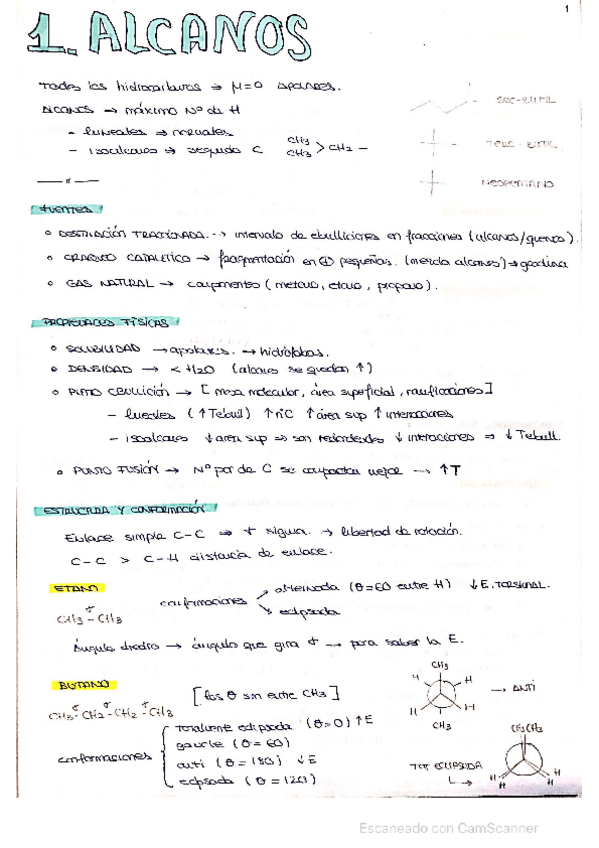 1
1. ALCANOS
Todos los hidrocarburos → μ=0 apolares.
ALCANOS → máximo Nº de H
- lineales → normales
- isoalcanos → segundo C CH3 CH3 > CH2 -
SEC-BUTIL
TERC-BUTIL
NEOPENTANO
FUENTES
DESTILACIÓN FRACCIONADA → intervalo de ebulliciones en fracciones (alcanos/quenos).
CRAQUEO CATALITICO → fragmentación en pequeñas. (mezcla alcanos) → gasolina
GAS NATURAL → (metano, etano, propano).
PROPIEDADES FÍSICAS
SOLUBILIDAD → apolares. → hidrófobas.
DENSIDAD → < H2O (alcanos se quedan ↑)
PUNTO EBULLICIÓN → [masa molecular, área superficial, ramificaciones]
- lineales (↑Tebull) ↑nºC ↑área sup ↑interacciones
- isoalcanos ↓area sup → son redondeados ↓interaciones → ↓Tebull.
PUNTO FUSIÓN → Nº par de C se empaquetan mejor → ↑T
ESTRUCTURA Y CONFORMACIÓN
Enlace simple C-C → sigma. → libertad de rotación.
C-C > C-H distancia de enlace.
ETANO
conformaciones
alternada (θ=60 entre H) ↓E.TORSIONAL.
eclipsada
σ
CH3-CH3
Ángulo diedro → ángulo que gira → para saber la E.
BUTANO
[los θ son entre CH3]
σ σ σ
CH3-CH2-CH2-CH3
CH3
H H
H H
CH3
→ ANTI
conformaciones
totalmente eclipsada (θ=0) ↑E
gauche (θ=60)
anti (θ=180) ↓E
eclipsada (θ=120)
CH3CH3
TOT. ECLIPSADA
H H H H
Escaneado con CamScanner